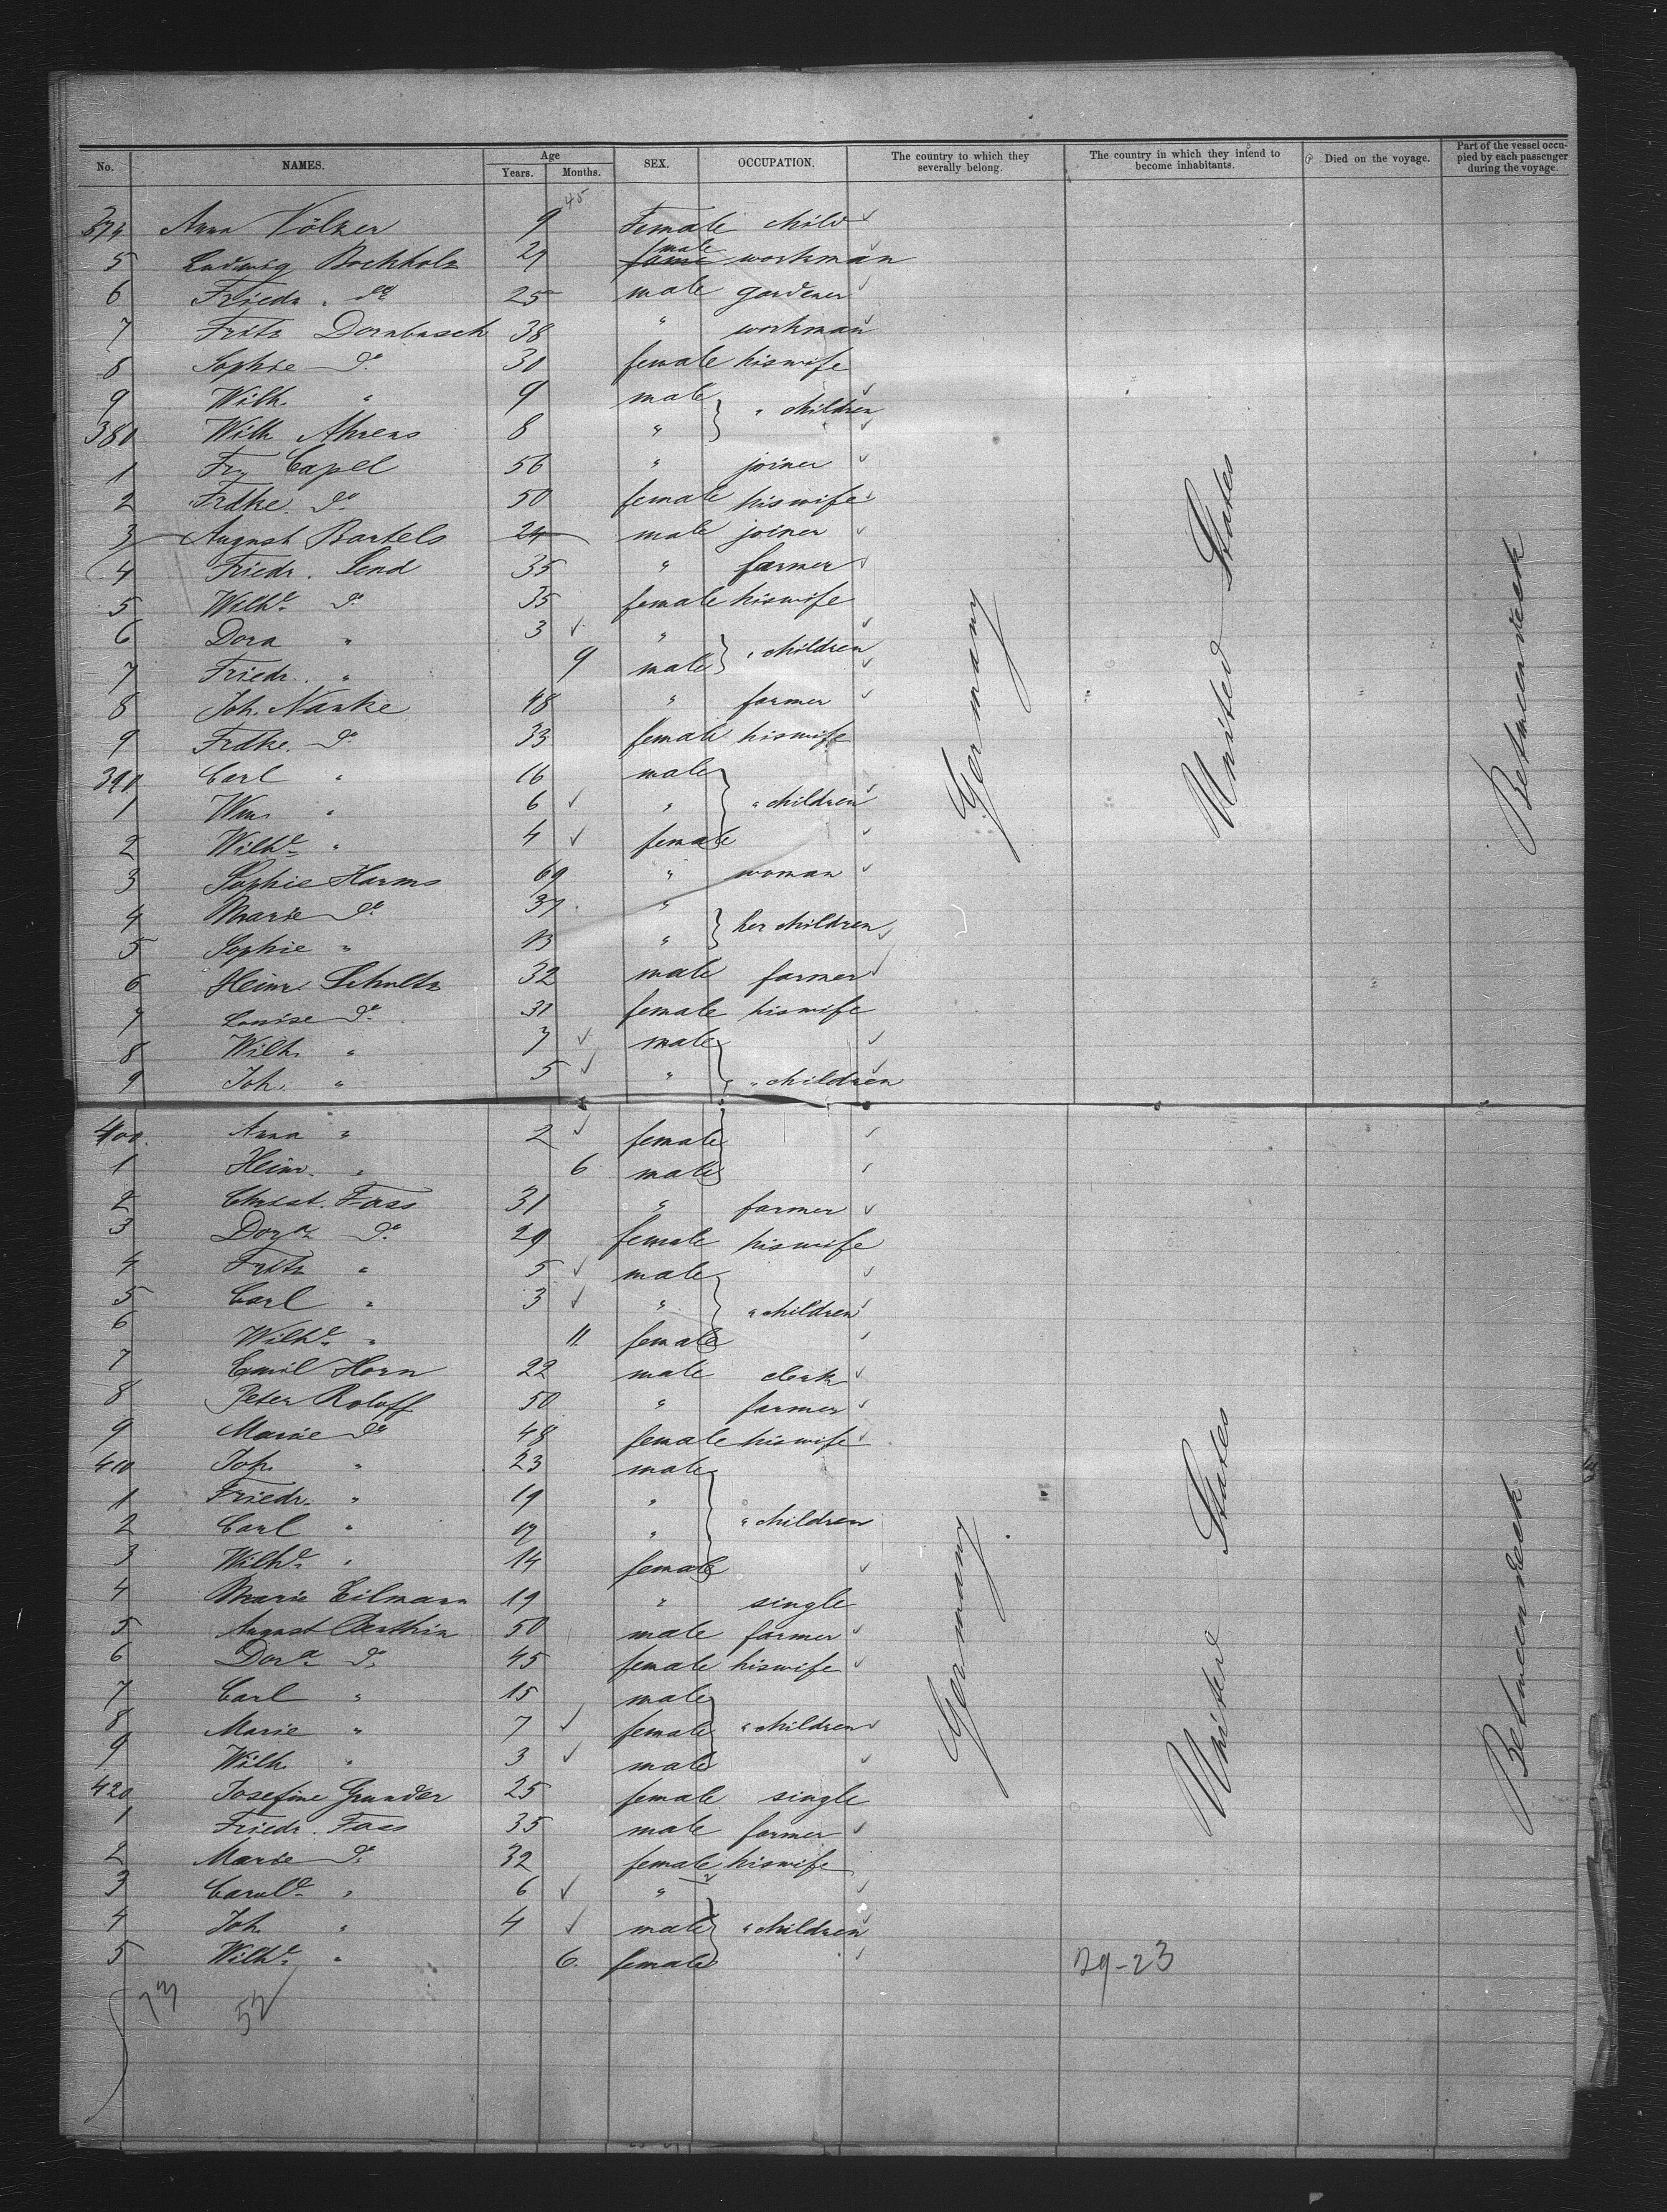 No. NAMES. Age Years. Months. SEX. OCCUPATION. The country to which they severally belong. The country in which they intend to become inhabitants. Died on the voyage. Part of the vessel occupied by each passenger during the voyage.
45
374 Anna Völker 9 Female child
5 Ludwig Bochholz 27 male workman
6 Friedr. do 25 male gardener
7 Fritz Dornbusch 38 " workman
8 Sophie do 30 female his wife
9 Wilh. " 9 male " children
380 Wilh Ahrens 8 "
1 Fr. Capel 56 " joiner
2 Frdke. do 50 female his wife
3 August Bartels 24 male joiner
4 Friedr. Send 35 " farmer
5 Wilhe do 35 female his wife
6 Dora " 3 " " children
7 Friedr. " 9 male
8 Joh. Nanke 48 " farmer
9 Frdke. do 33 female his wife
390 Carl " 16 male
1 Wm " 6 " " children
2 Wilhe " 4 female
3 Sophie Harms 69 " woman
4 Marie do 37 " her children
5 Sophie " 13 "
6 Heinr. Schultz 32 male farmer
7 Louise do 31 female his wife
8 Wilh. " 7 male
9 Joh. " 5 " " children
400 Anna " 2 female
1 Heinr. " 6 male
2 Christ. Fass 31 " farmer
3 Dora do 29 female his wife
4 Fritz " 5 male
5 Carl " 3 " " children
6 Wilhe " 11 female
7 Emil Horn 22 male clerk
8 Peter Roloff 50 " farmer
9 Marie do 48 female his wife
410 Joh. " 23 male
1 Friedr. " 19 "
2 Carl " 17 " " children
3 Wilhe " 14 female
4 Marie Eilmann 19 " single
5 August Genthin 50 male farmer
6 Dora do 45 female his wife
7 Carl " 15 male
8 Marie " 7 female " children
9 Wilh. " 3 male
420 Josefine Grunder 25 female single
1 Friedr. Fass 35 male farmer
2 Marie do 32 female his wife
3 Carole " 6 "
4 Joh. " 4 male " children
5 Wilhe " 6 female
Germany
United States
Between deck
Germany
United States
Between deck
29-23
73
52